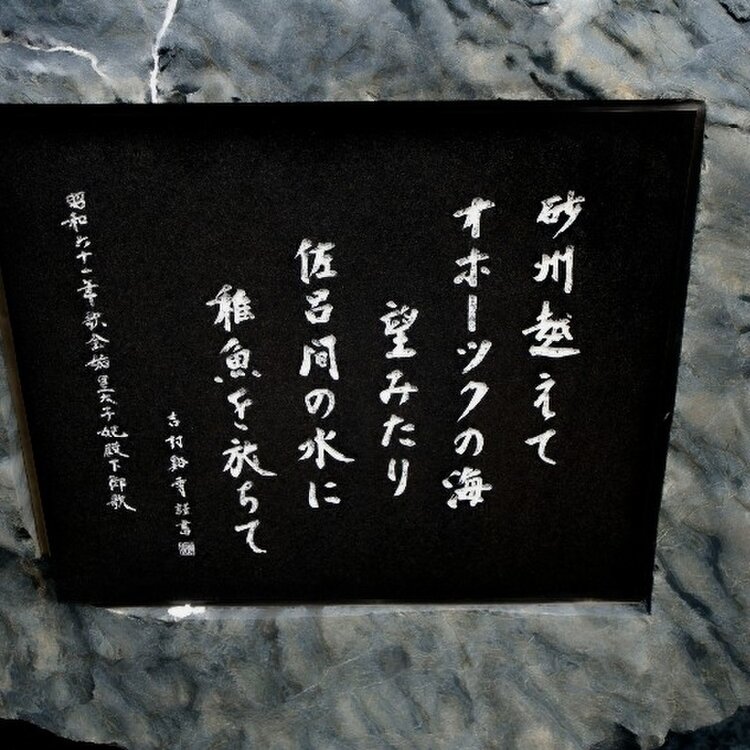 砂州越えて
オホーツクの海
望みたり
佐呂間の水に
稚魚を放ちて
吉村
謹書
昭和六十一年歌会始皇太子妃殿下御歌